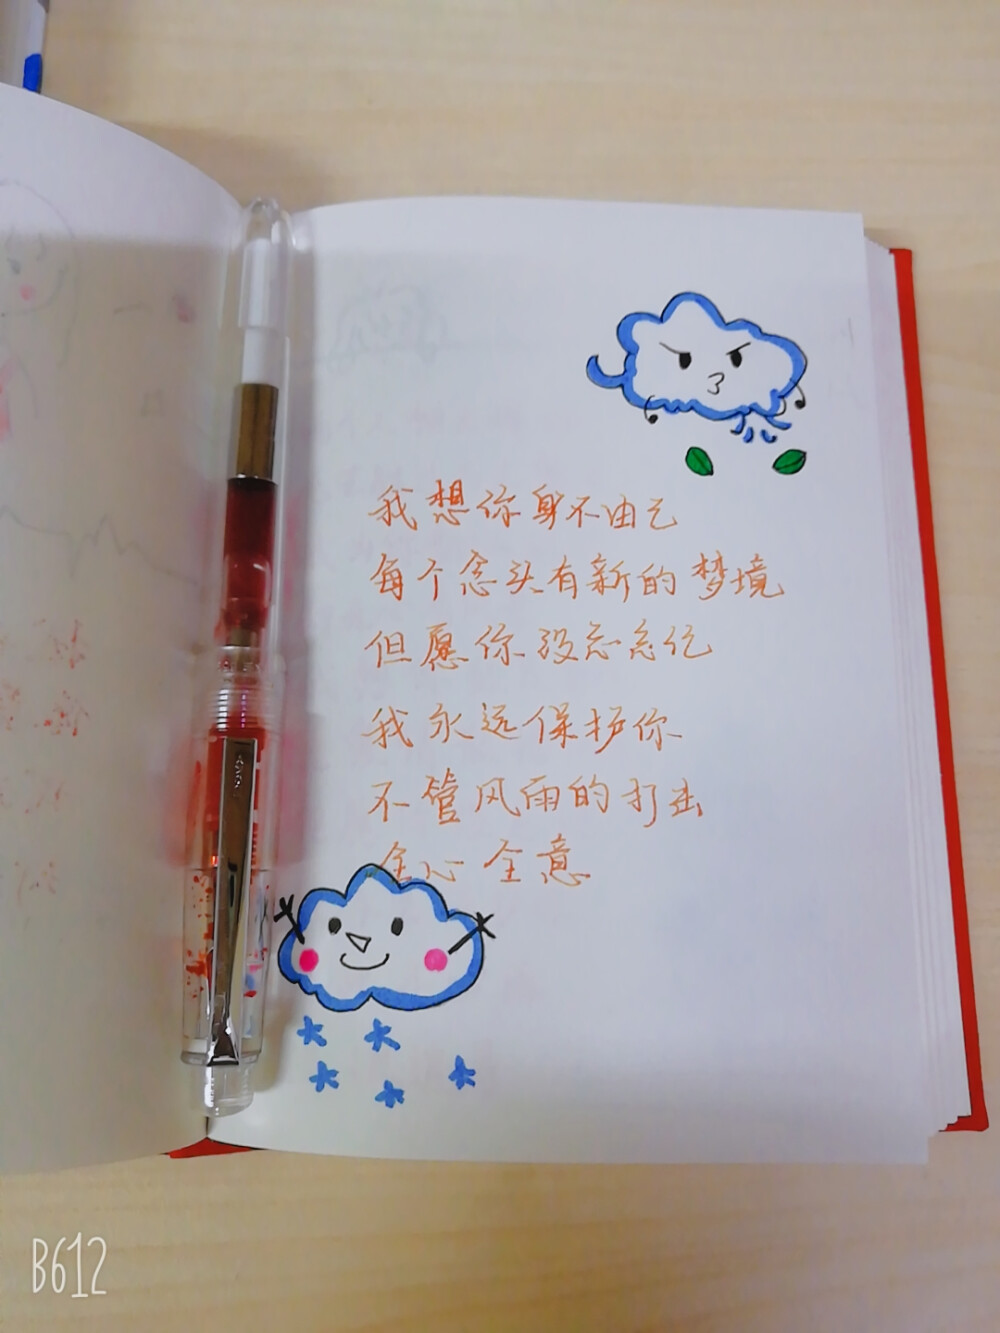 我想你身不由己
每个念头有新的梦境
但愿你没忘忘记
我永远保护你
不管风雨的打击
全心全意
B612